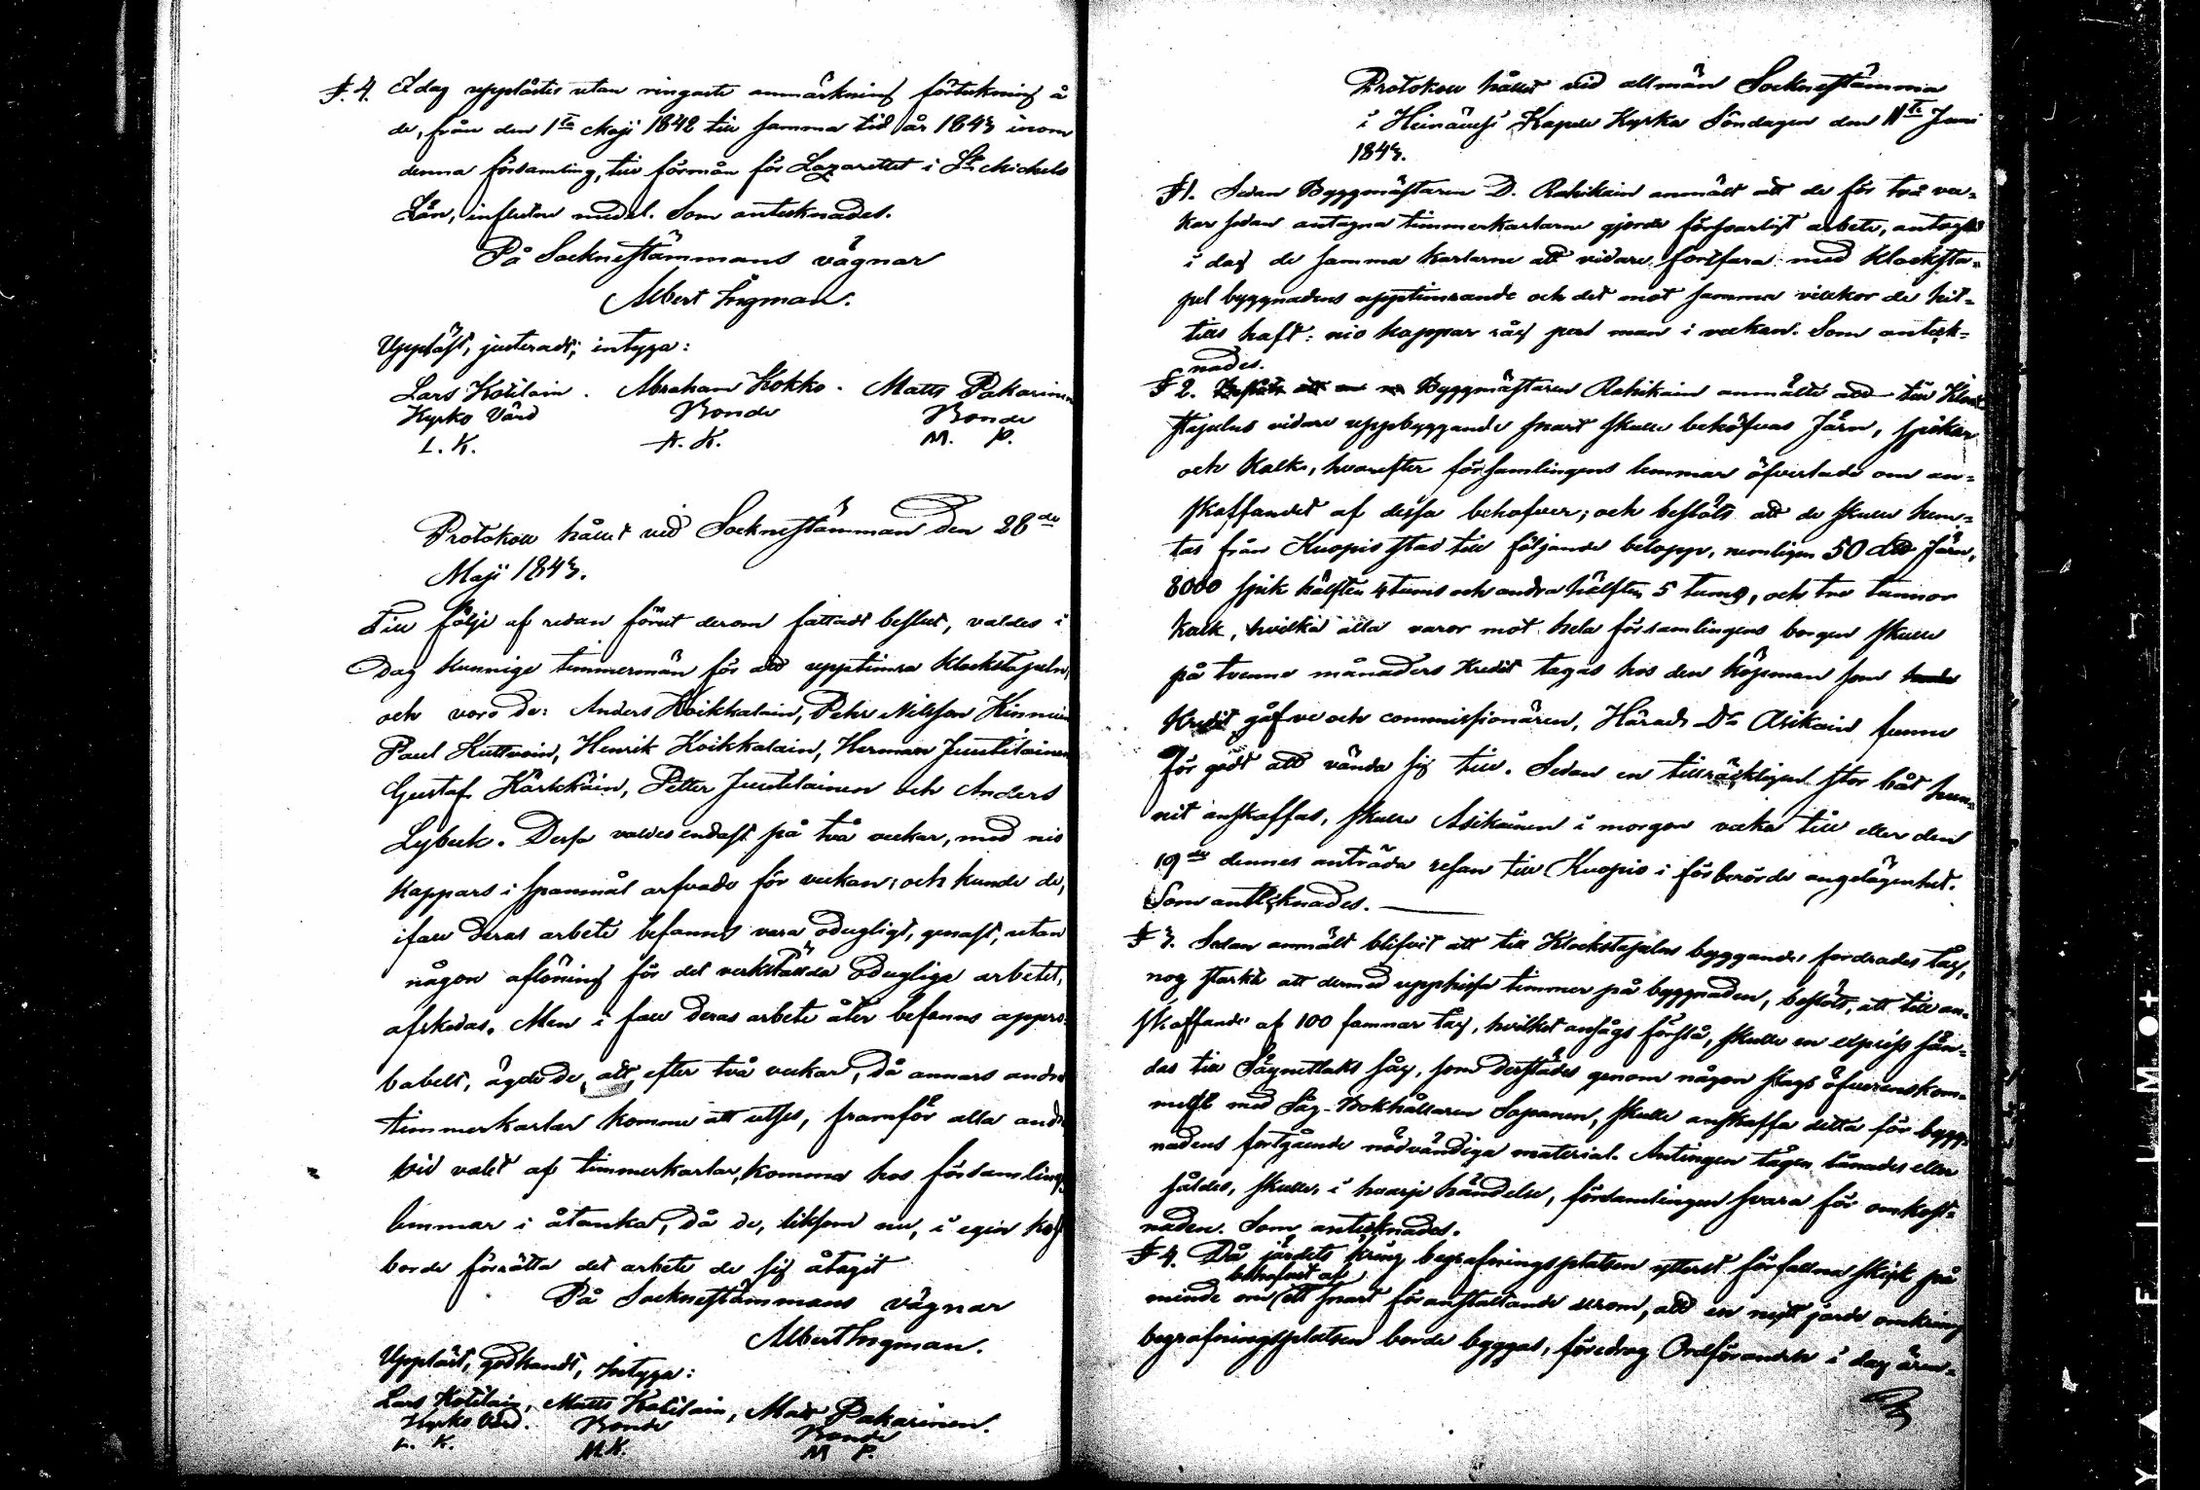 §. 4. I dag upplästes utan ringaste anmärkning förtekning å
de, från den 1ta Maji 1842 till samma tid år 1843 inom
denna församling, till förmån för Lazarettet i St Michels
Län, influtne medel. Som antecknades.
På Sockneståmmans vägnar
Albert Ingman.
Uppläst, justeradt, intyga:
Lars Kotilain . Abraham Kokko . Matts Pakarinen
Kyrko Värd Bonde Bonde
L. K. A. K. M. P.
Protokoll hållet vid Sockneståmman den 28de
Maji 1843.
Till följe af redan förut derom fattadt beslut, valdes i
Dag kunnige timmermän för att upptimra klockstapeln,
och voro de: Anders Koikkalain, Pehr Nilsson Kinnuin
Paul Kuttvoin, Henrik Koikkalain, Herman Juutilainen
Gustaf Kärkkäin, Petter Juutilainen och Anders
Lybeck. Desse valdes endast på två veckor, med nio
kappars i spanmål arfvode för veckan; och kunde de,
ifall deras arbete befanns vara odugligt, genast, utan
någon aflöning för det verkstälda odugliga arbetet,
afskedas. Men i fall deras arbete åter befanns appro-
babelt, ägde de, att, efter två veckor, då annars andre
timmerkarlar komme att utses, framför alla andre
vid valet af timmerkarlar, komma hos församlings
lemmar i åtanka, då de, liksom nu, i egen kost
borde förrätta det arbete de sig åtagit
På Sockneståmmans vägnar
Albert Ingman.
Uppläst, godkändt, intyga:
Lars Kotilain, Matts Kotilain, Matts Pakarinen.
Kyrko Värd. Bonde Bonde
L. K. M. K. M P.
Protokoll hållet vid allmän Socknestämma
i Heinävesi Kapell Kyrka Söndagen den 11te Juni
1843.
§1. Sedan Byggmästaren D. Rahikain anmält att de för två vec-
kor sedan antagna timmerkarlarne gjorde försvarligt arbete, antogs
i dag de samma karlarne att vidare fortfara med klocksta-
pel byggnadens upptimrande och det mot samma villkor de hit-
tills haft: nio kappar råg per man i veckan. Som anteck-
nades.
§ 2. Byggmästaren Rahikain anmälte att till Klock
stapelns vidare uppbyggande snart skulle behöfvas Järn, spikar
och Kalk, hvarefter församlingens lemmar öfverlade om an-
skaffandet af dessa behofver; och beslöts att de skulle hem-
tas från Kuopio stad till följande belopp, nemligen 50 Järn,
8000 spik hälften 4 tums och andra hälften 5 tums, och tre tunnor
kalk, hvilka alla varor mot hela församlingens borgen skulle
på tvenne månaders kredit tagas hos den köpman som
kredit gåfve och commissionären, Härads Dn Asikain funne
för godt att vända sig till. Sedan en tillräckligen stor båt hun-
nit anskaffas, skulle Asikainen i morgon vecka till eller den
19de dennes anträda resan till Kuopio i förberörde angelägenhet.
Som antecknades.
§ 3. Sedan anmält blifvit att till Klockstapelns byggande fordrades tåg,
nog starka att dermed upphissa timmer på byggnaden, beslöts, att till an-
skaffande af 100 famnar tåg, hvilket ansågs förslå, skulle en express sän-
das till såg, som derstädes genom någon slags öfverenskom-
melse med Såg-Bokhållaren Saparen, skulle anskaffa detta för bygg-
nadens fortgående nödvändiga material. Antingen tågen lånades eller
såldes, skulle, i hvarje händelse, församlingen svara för omkost-
naden. Som antecknades.
§ 4. Då järdets kring begrafningsplatsen ytterst förfallna skick på
behofvet af
minde om ett snart föranstaltande derom, att en nytt järde omkring
begrafningsplatsen borde byggas, föredrog Ordföranden i dag ären-